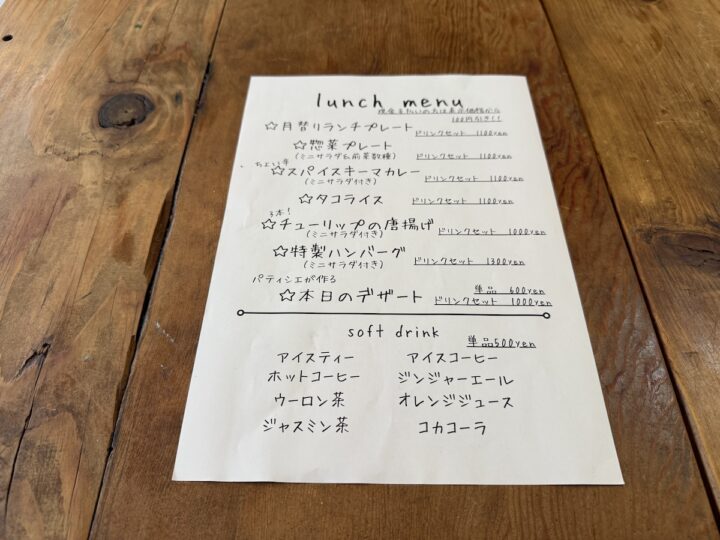 lunch menu
現金支払いの方は表示価格から
100円引き!!
☆月替りランチプレート ドリンクセット 1100yen
☆惣菜プレート
(ミニサラダ&前菜数種) ドリンクセット 1100yen
ちょい辛
☆スパイスキーマカレー
(ミニサラダ付き) ドリンクセット 1100yen
☆タコライス ドリンクセット 1100yen
3本!
☆チューリップの唐揚げ
(ミニサラダ付き) ドリンクセット 1000yen
☆特製ハンバーグ
(ミニサラダ付き) ドリンクセット 1300yen
パティシエが作る
☆本日のデザート 単品 600yen
ドリンクセット 1000yen
soft drink 単品500yen
アイスティー アイスコーヒー
ホットコーヒー ジンジャーエール
ウーロン茶 オレンジジュース
ジャスミン茶 コカコーラ